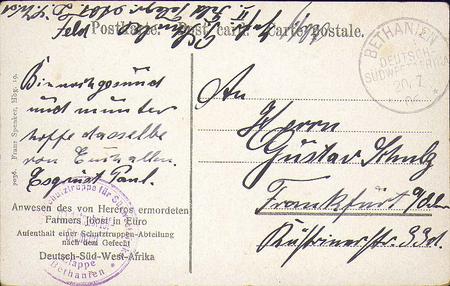 Feld
Postkarte. Post card. Carte postale.
BETHANIEN
DEUTSCH-
SÜDWESTAFRIKA
20. 7.
06
Bin noch gesund
und munter
hoffe dasselbe
von Euch allen.
Es grüßt Paul.
An
Herrn
Gustav Schulz
Frankfurt a/Oder
Küstrinerstr.
7036. Franz Spenker, Hbg. 19.
Anwesen des von Hereros ermordeten
Farmers Joost in Etiro
Aufenthalt einer Schutztruppen-Abteilung
nach dem Gefecht
Deutsch-Süd-West-Afrika
Schutztruppe für
Etappe
Bethanien